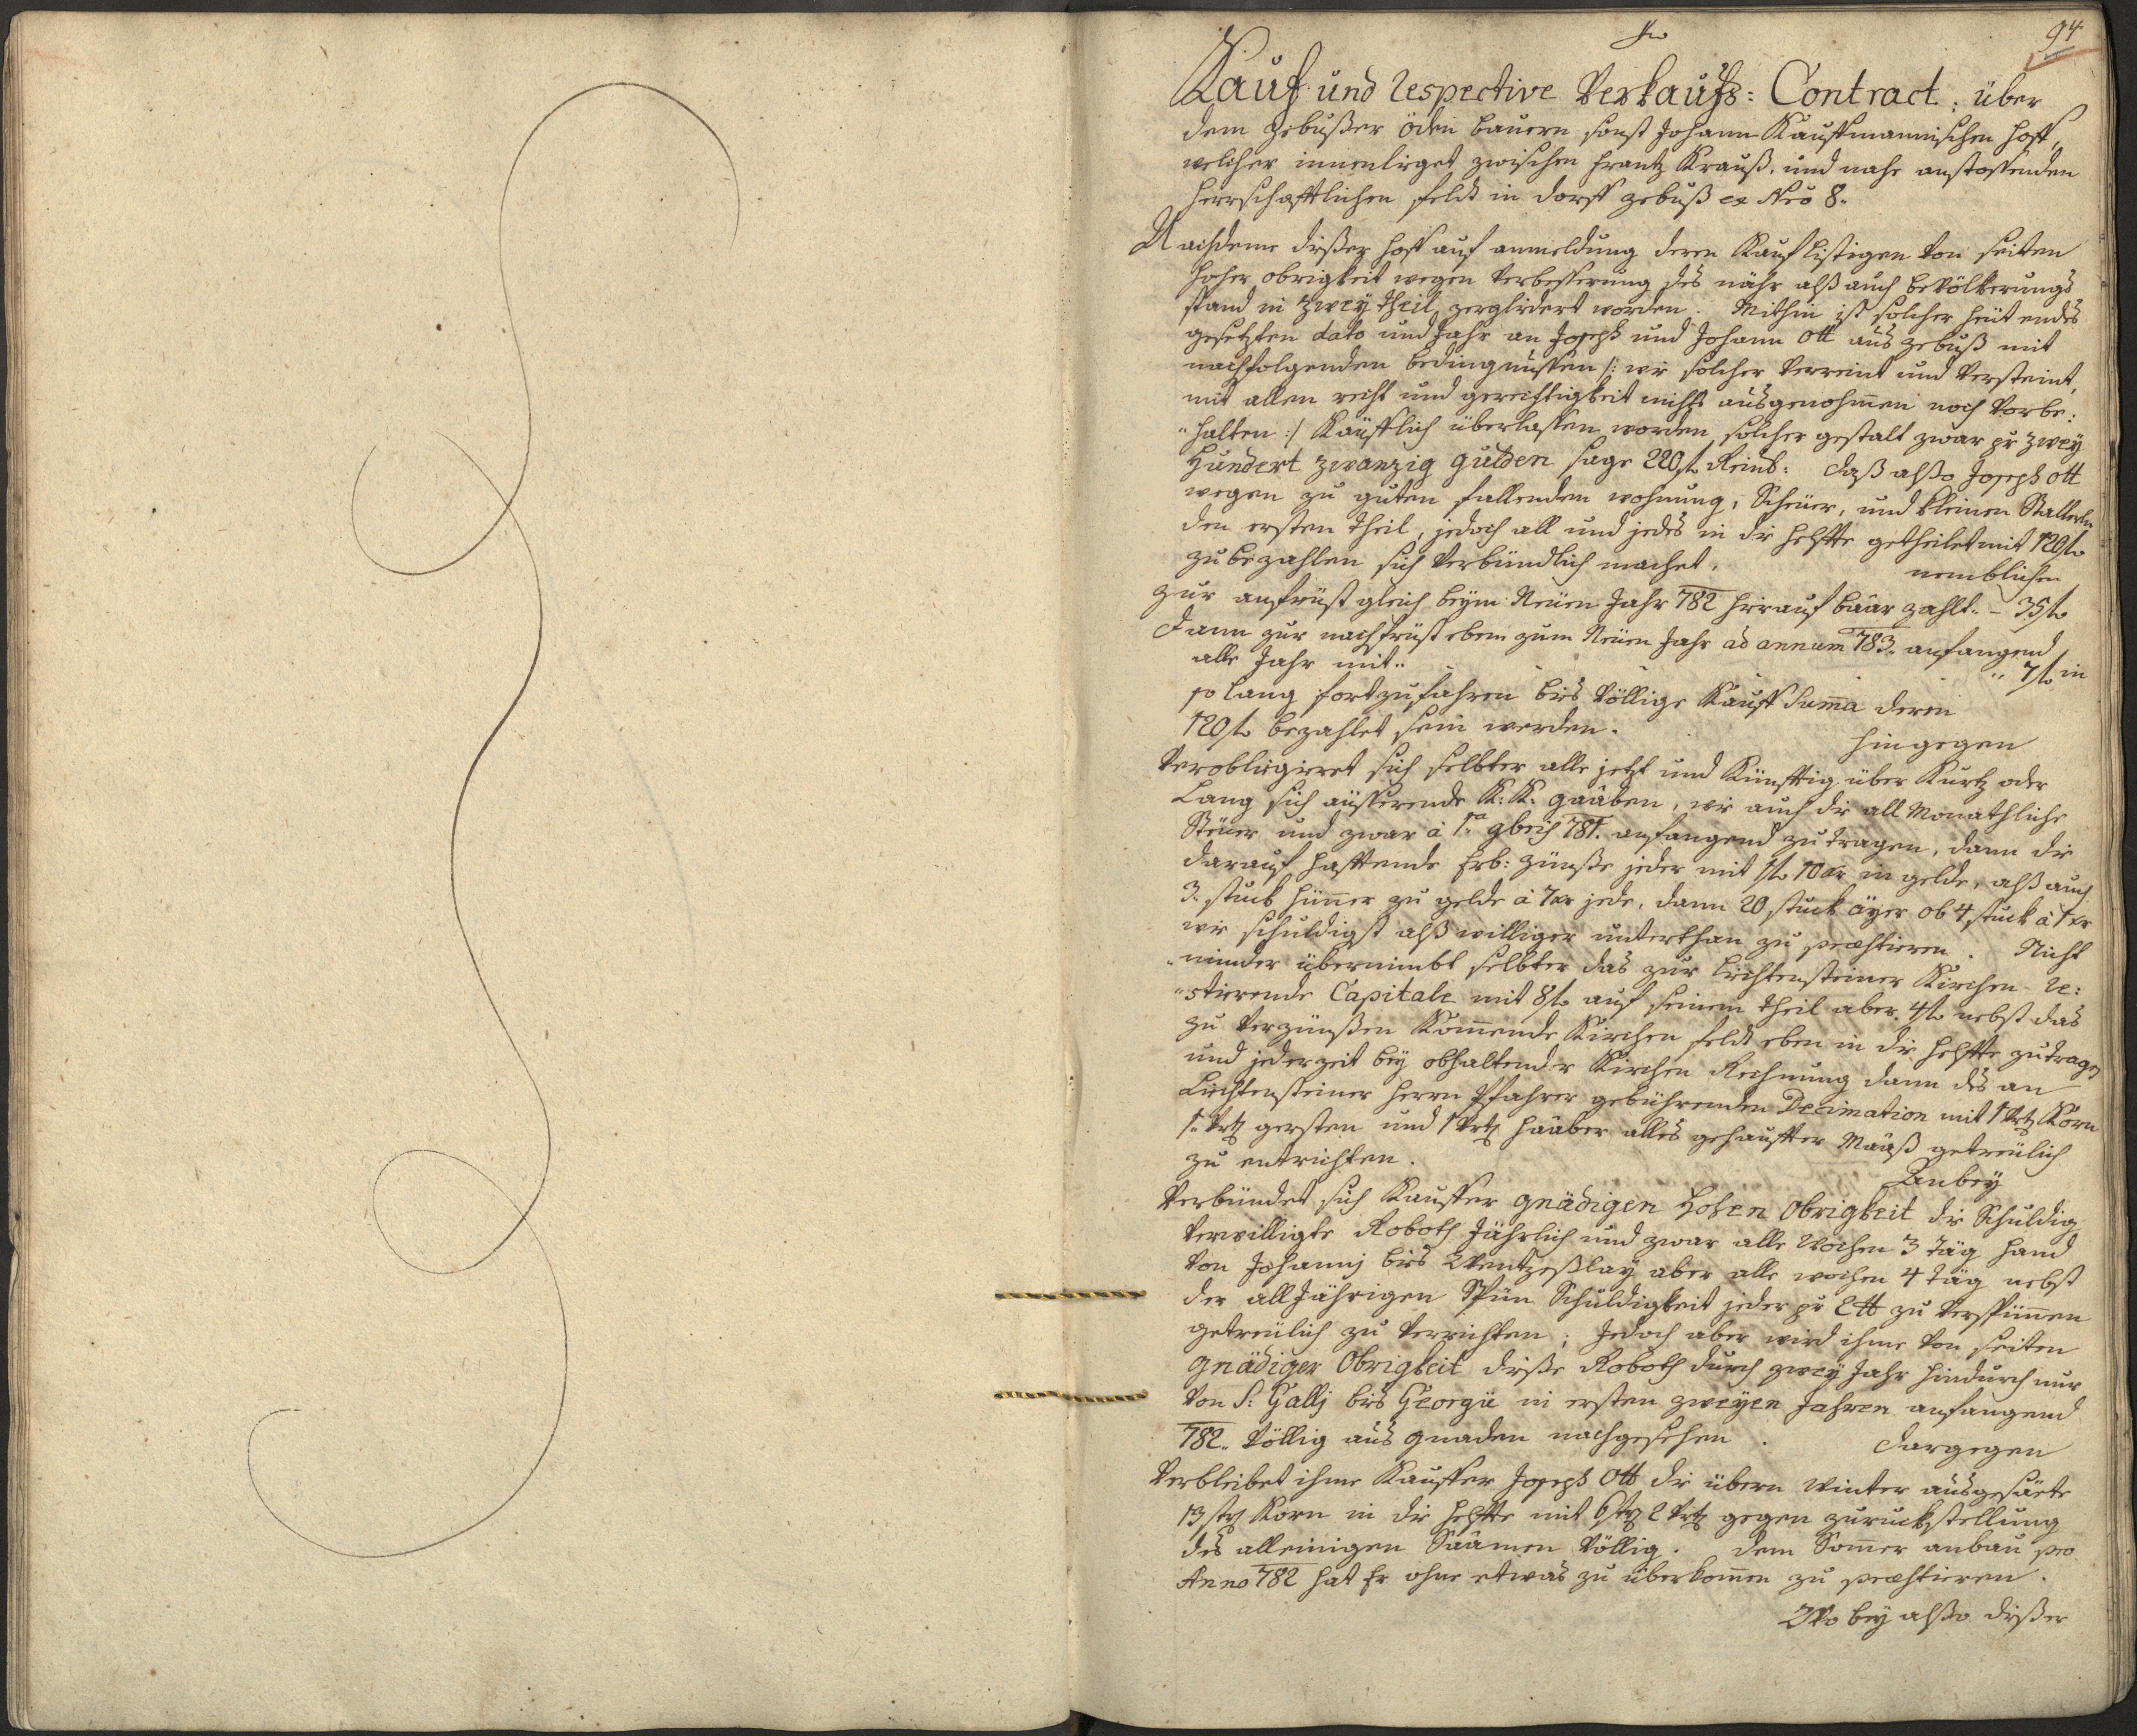 94
Kauf und respective Verkaufs= Contract: über
dem Gebußer öden bauern sonst Johann Kauffmannischen hoff,
welcher innenlieget zwischen Frantz Krauß, und nahe anstossenden
herrschafftlichen feldt in dorff Gebuß ex Nro 8.
Nachdeme dießer hoff auf anmeldung deren Kauf listigen von seiten
hoher obrigkeit wegen verbesserung des nähr alß auch bevölkerungs
stand in zwey theil zergliedert worden. Mithin ist solcher heüt endes
gesetzten dato und Jahr an Joseph und Johann Ott aus Gebuß mit
nachfolgenden bedingnüssen /: wie solcher verreint und versteint,
mit allen recht und gerechtigkeit nichts ausgenohmen noch vorbe:
"halten :/ Käufflich überlassen worden, solcher gestalt zwar pr zwey
Hundert zwanzig gulden sage 220 fl Reinl: daß alßo Joseph Ott
wegen zu guten fallenden wohnung, Scheüer, und kleinen Stallerln
den ersten theil, jedoch all und jedes in die helffte getheilet mit 120 fl
zu bezahlen sich verbündlich machet,
nemblichen
zur anfrüst gleich beym Neüen Jahr 782 hierauf baar zahlt.. – 35 fl
Dann zur nachfrüst eben zum Neüen Jahr ad annum 783. anfangend
alle Jahr mit.. .. 7 fl in
so lang fortzufahren bies völlige Kauff Suma deren
120 fl bezahlet sein werden.
hingegen
Verobligieret sich selbter alle jetzt und Künfftig über Kurtz oder
Lang sich äüsserende K: K: gaaben, wie auch die all Monathliche
Steüer und zwar à 1ma gleich 781. anfangend zu tragen, dann die
darauf hafftende Erb: zünße jeder mit 1 fl 10 xr in gelde, alß auch
3. stuck hüner zu gelde à 7 xr jede, dann 20 stuck äyer ob 4 stuck à 1 xr
wie schuldigst alß williger unterthan zu praestieren. Nicht
"minder übernimbt selbter das zur Liechtensteiner Kirchen re:
"stierende Capitale mit 8 fl auf seinem theil aber 4 fl nebst das
zu verzünßen Komende Kirchen feldt eben in die helffte zu tragen
und jederzeit bey abhaltender Kirchen Rechnung dann des an
Liechtensteiner Herrn Pfahrer gebührenden Decimation mit 1 Vrtl Korn
1. Vrtl gersten und 1 Vrtl haaber alles gehauffter Maaß getreülich
zu entrichten.
Anbey
Verbündet sich Kauffer gnädigen Hohen Obrigkeit die Schuldig
verwilligte Roboth Jährlich und zwar alle Wochen 3 täg hand
von Johannj bies Wentzeßlay aber alle wochen 4 täg nebst
der all Jährigen Spün Schuldigkeit jeder pr 2 ℔ zu verspünnen
getreülich zu verrichten; Jedoch aber wird ihme von seiten
gnädiger Obrigkeit dieße Roboth durch zwey Jahr hindurch nur
von S: Gallj bies Georgii in ersten zweyen Jahren anfangend
782.. völlig aus gnaden nachgesehen.
dargegen
Verbleibet ihme Kauffer Joseph Ott die übern winter ausgesäete
13 strl Korn in die helffte mit 6 strl 2 Vrtl gegen zuruckstellung
des alleinigen Saamen völlig. dem Somer anbau pro
Anno 782 hat Er ohne etwas zu überkomen zu praestieren.
Wo bey alßo dießer